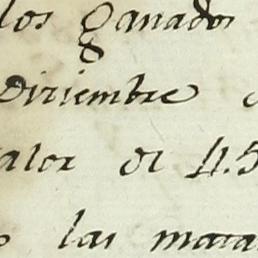 los ganados
Diziembre
valor de 4.5
las mata